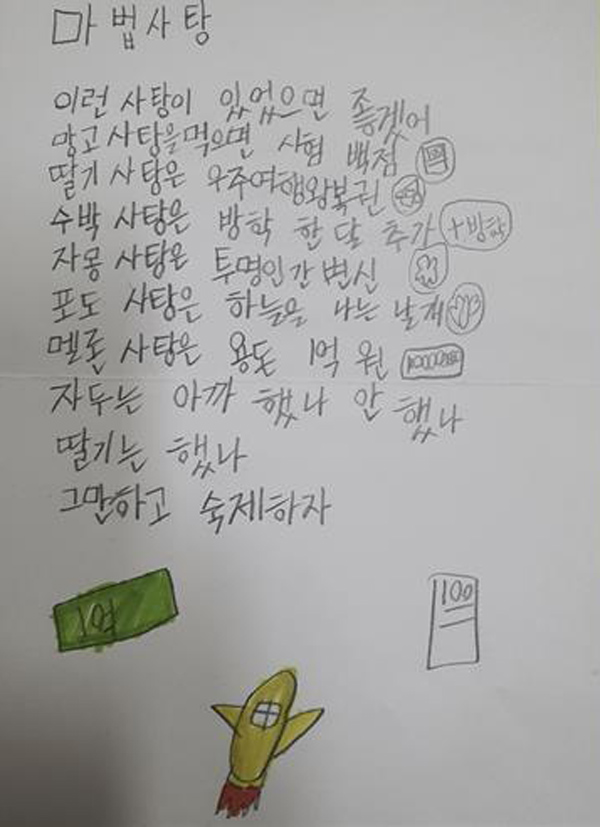 마법사탕
이런 사탕이 있었으면 좋겠어
망고사탕을먹으면 시험 백점
딸기 사탕은 우주여행왕복권
수박 사탕은 방학 한 달 추가 +방학
자몽 사탕은 투명인간변신
포도 사탕은 하늘을 나는 날개
멜론 사탕은 용돈 1억 원
자두는 아까 했나 안 했나
딸기는 했나
그만하고 숙제하자
1억
100